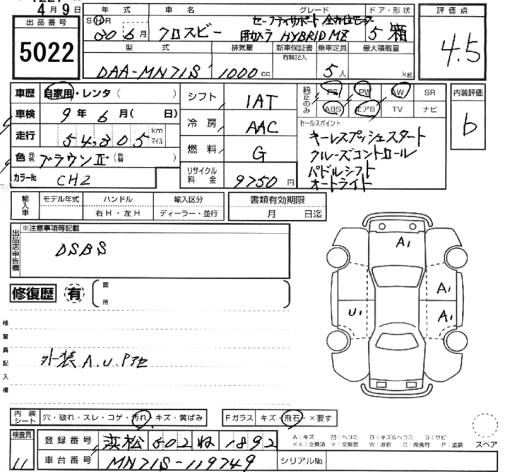 4月9日
出品番号 5022
年式 車名 グレード ドア・形状 評価点
30年6月 クロスビー HYBRID MZ 5 箱
4.5
型式 排気量 新車保証書 乗車定員 最大積載量
有無記入
DAA-MN71S 1000 cc 5人 kg
車歴 自家用・レンタ( ) シフト 1AT
純正のみ PS PW AW SR
ABS エアB TV ナビ
内装評価 b
車検 9年6月(日) 冷房 AAC
セールスポイント
走行 54,305 km マイル
キーレスプッシュスタート
クルーズコントロール
パドルシフト
オートライト
色 ブラウンⅡ 燃料 G
カラーNo CHZ リサイクル料金 9750円
輸入車 モデル年式 ハンドル 輸入区分 書類有効期限
右H・左H ディーラー・並行 月 日迄
出品店申告欄 ※注意事項等記載
DSBS
修復歴 有 箇所
検査員記入欄
外装 A.U.Pアセ
A1
A1
U1 A1
内装シート 穴・破れ・スレ・コゲ・汚れ・キズ・黄ばみ Fガラス キズ・飛石・×要す
スペア
検査員 11
登録番号 浜松 502 ね 1892
車台番号 MN71S-119749 シリアルNo.